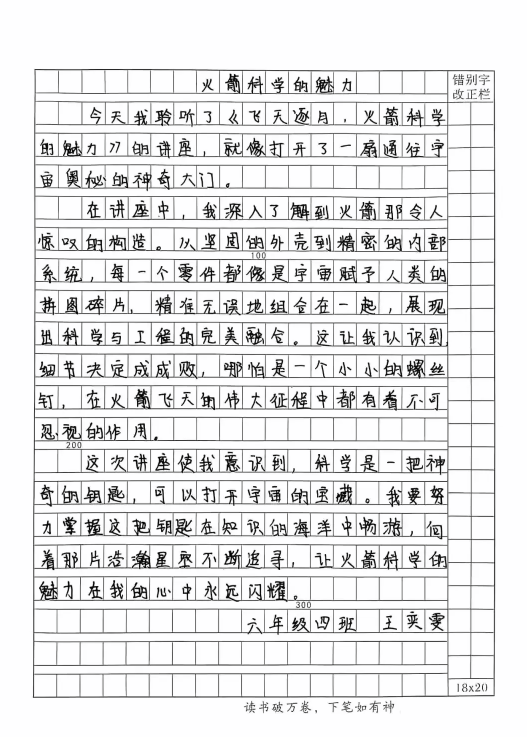 错别字
改正栏
火箭科学的魅力
今天我聆听了《飞天逐月，火箭科学
的魅力》的讲座，就像打开了一扇通往宇
宙奥秘的神奇大门。
在讲座中，我深入了解到火箭那令人
惊叹的构造。从坚固的外壳到精密的内部
100
系统，每一个零件都像是宇宙赋予人类的
拼图碎片，精准无误地组合在一起，展现
出科学与工程的完美融合。这让我认识到，
细节决定成成败，哪怕是一个小小的螺丝
钉，在火箭飞天的伟大征程中都有着不可
忽视的作用。
200
这次讲座使我意识到，科学是一把神
奇的钥匙，可以打开宇宙的宝藏。我要努
力掌握这把钥匙在知识的海洋中畅游，向
着那片浩瀚星丞不断追寻，让火箭科学的
魅力在我的心中永远闪耀。
300
六年级四班 王奕雯
18x20
读书破万卷，下笔如有神